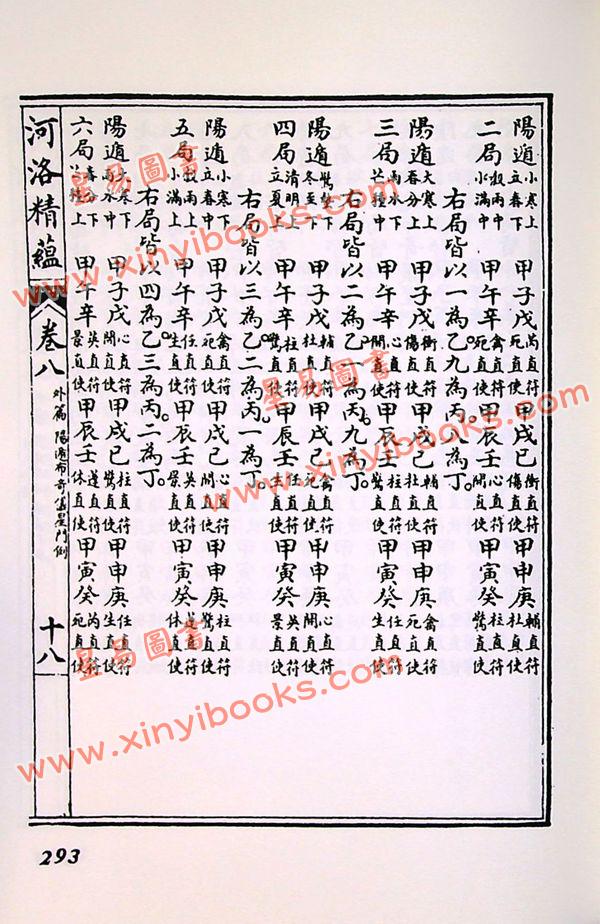 陽遁小寒上立春下 甲子戊芮直符死直使甲戌己衝直符傷直使甲申庚輔直符杜直使
二局穀雨中小滿中 甲午辛禽直符死直使甲辰壬心直符開直使甲寅癸柱直符驚直使
右局皆以一為乙。九為丙。八為丁。
陽遁大寒上春分上 甲子戊衝直符傷直使甲戌己輔直符杜直使甲申庚禽直符死直使
三局雨水下芒種中 甲午辛心直符開直使甲辰壬柱直符驚直使甲寅癸任直符生直使
右局皆以二為乙。一為丙。九為丁。
陽遁驚蟄下冬至下 甲子戊輔直符杜直使甲戌己禽直符死直使甲申庚心直符開直使
四局清明上立夏上 甲午辛柱直符驚直使甲辰壬任直符生直使甲寅癸英直符景直使
右局皆以三為乙。二為丙。一為丁。
陽遁小寒下立春中 甲子戊禽直符死直使甲戌己心直符開直使甲申庚柱直符驚直使
五局穀雨上小滿上 甲午辛任直符生直使甲辰壬英直符景直使甲寅癸蓬直符休直使
右局皆以四為乙。三為丙。二為丁。
陽遁大寒下雨水中 甲子戊心直符開直使甲戌己柱直符驚直使甲申庚任直符生直使
六局春分下芒種上 甲午辛英直符景直使甲辰壬蓬直符休直使甲寅癸芮直符死直使
河洛精蘊 卷八 外篇 陽遁布奇儀星門例 十八
293
星易圖書
www.xinyibooks.com
星易圖書
www.xinyibooks.com
星易圖書
www.xinyibooks.com